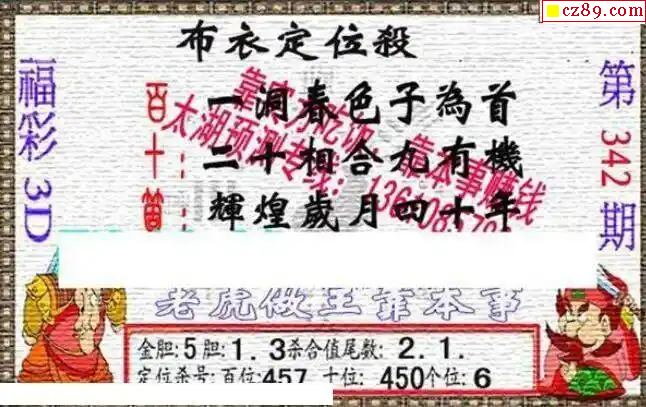 cz89.com
布衣定位殺
福彩3D
第342期
百十個
一洞春色子為首
二十相合九有機
輝煌歲月四十年
太湖预测专线:
靠本事赚钱
老虎做王靠本事
金胆:5胆:1.3杀合值尾数:2.1.
定位杀号:百位:457 十位:450个位:6